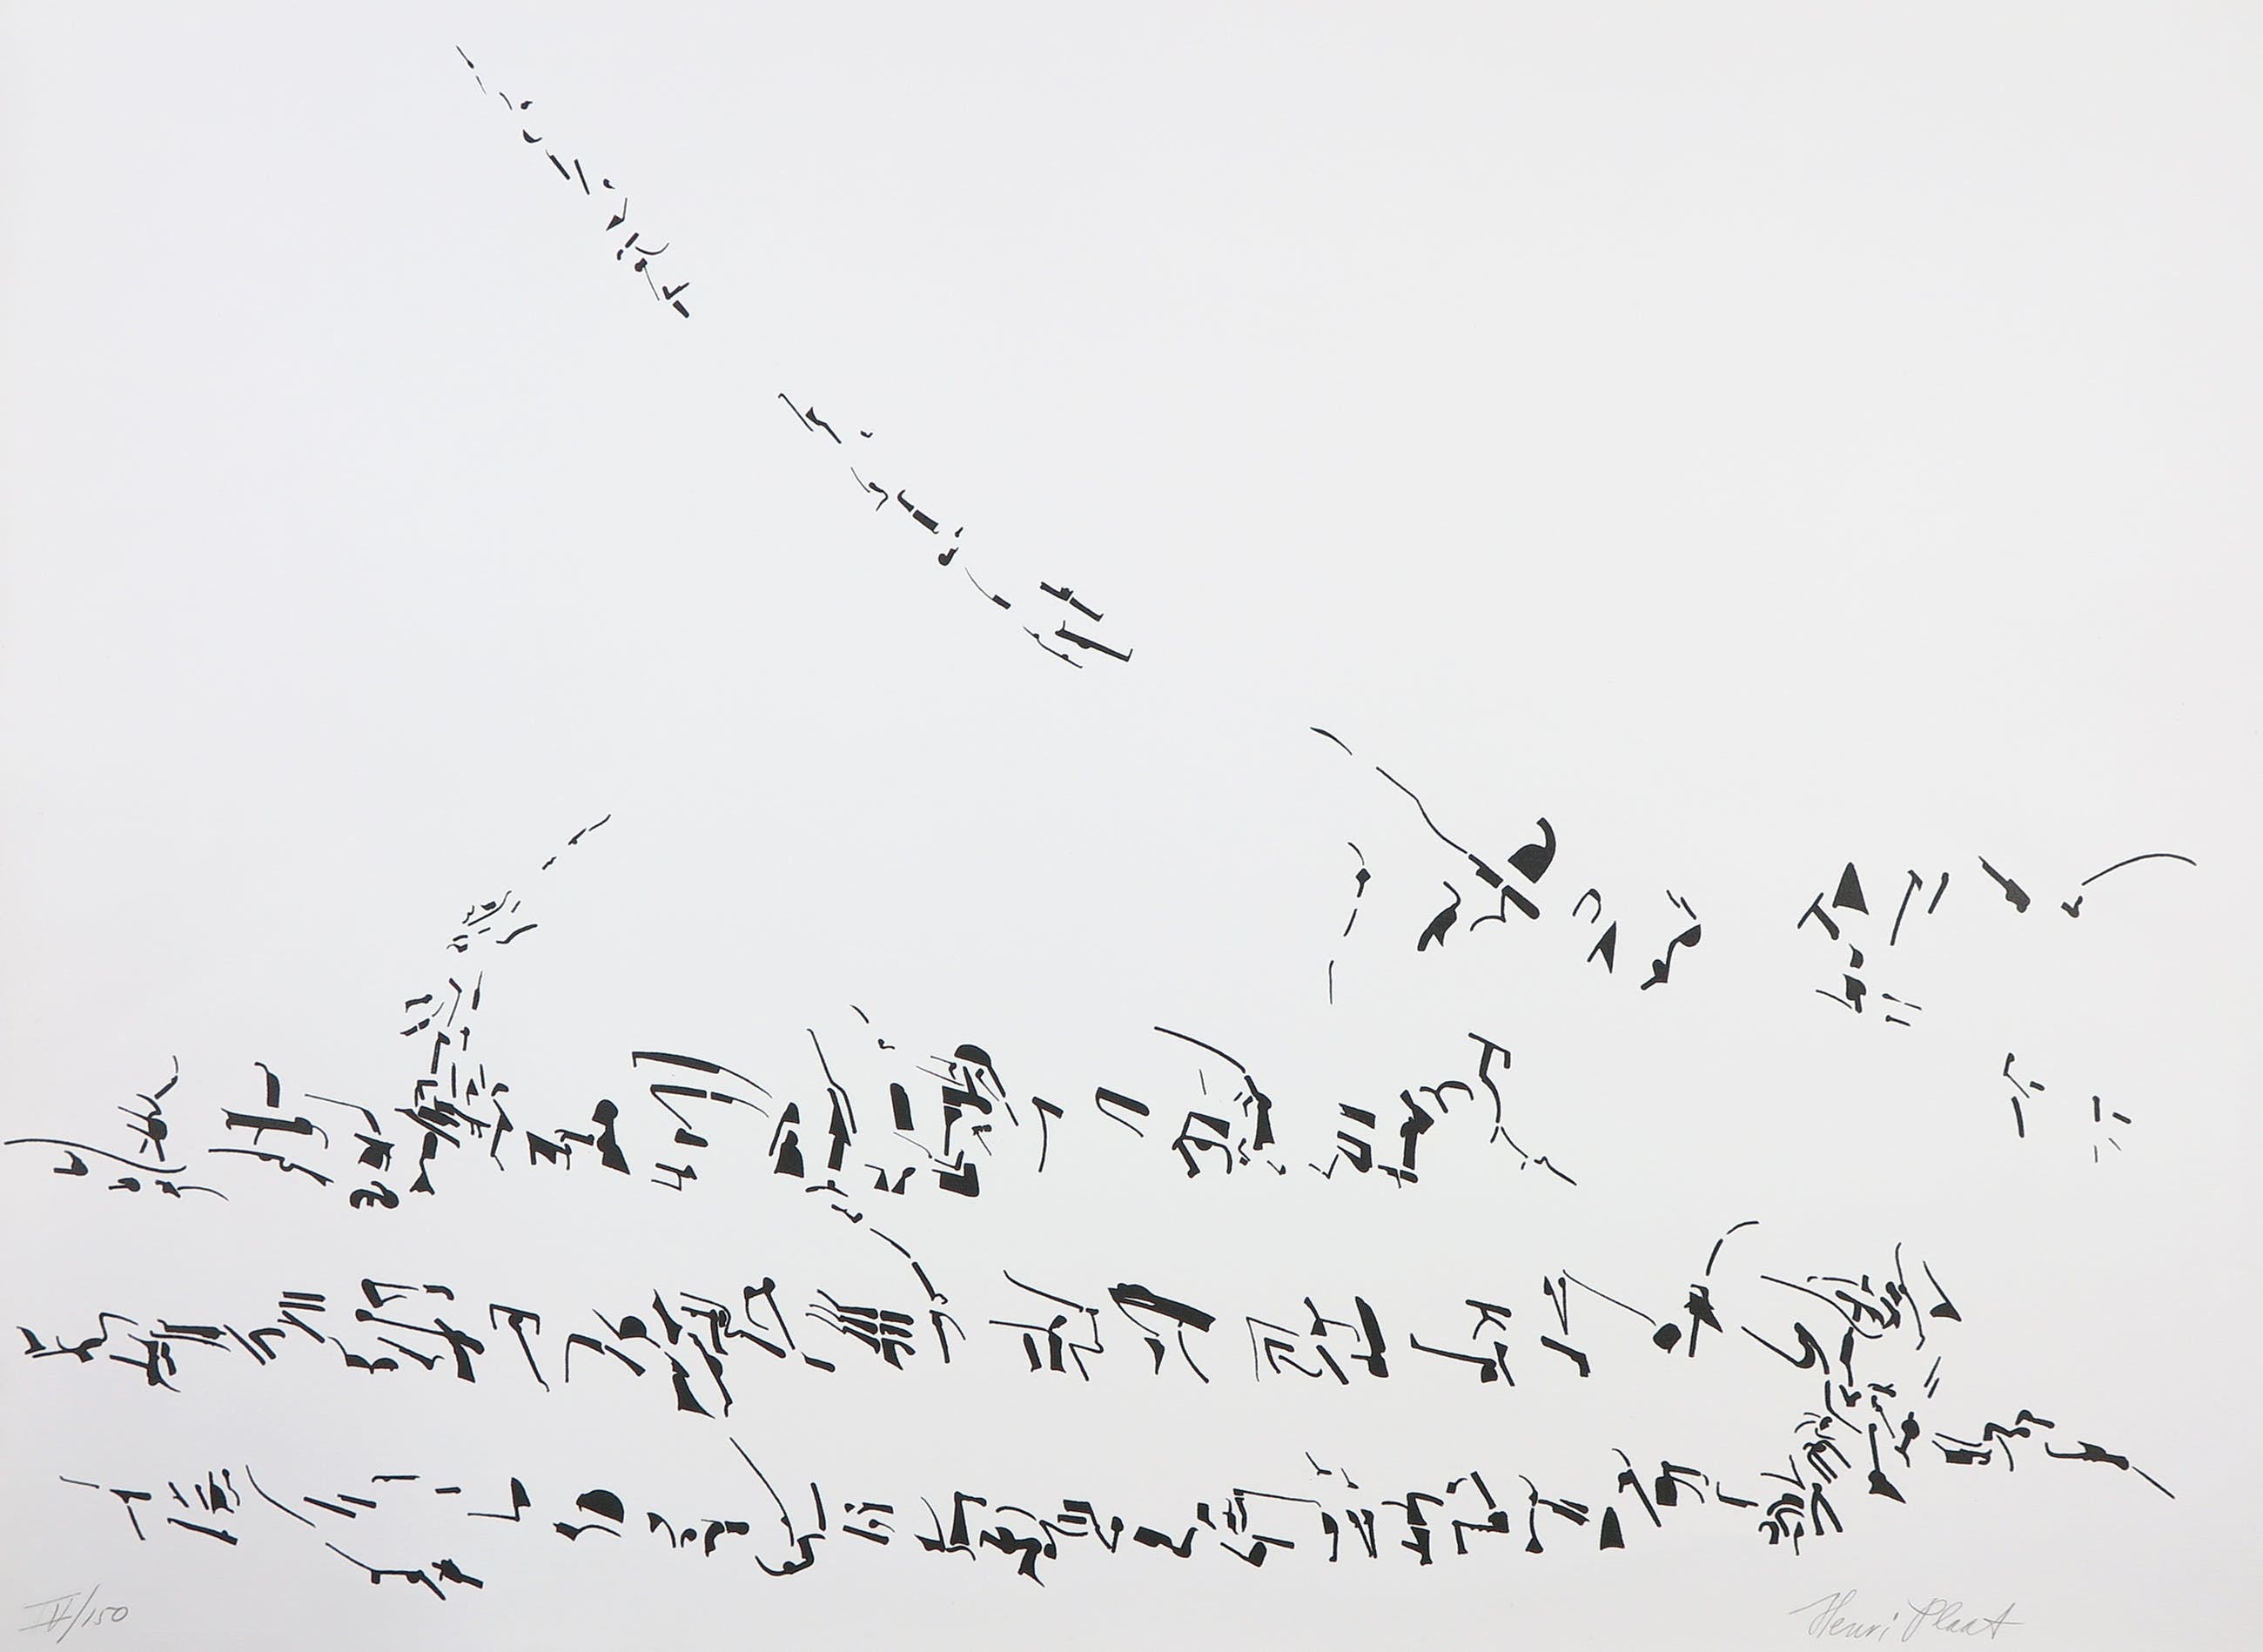 IV/150
Henri Plaat